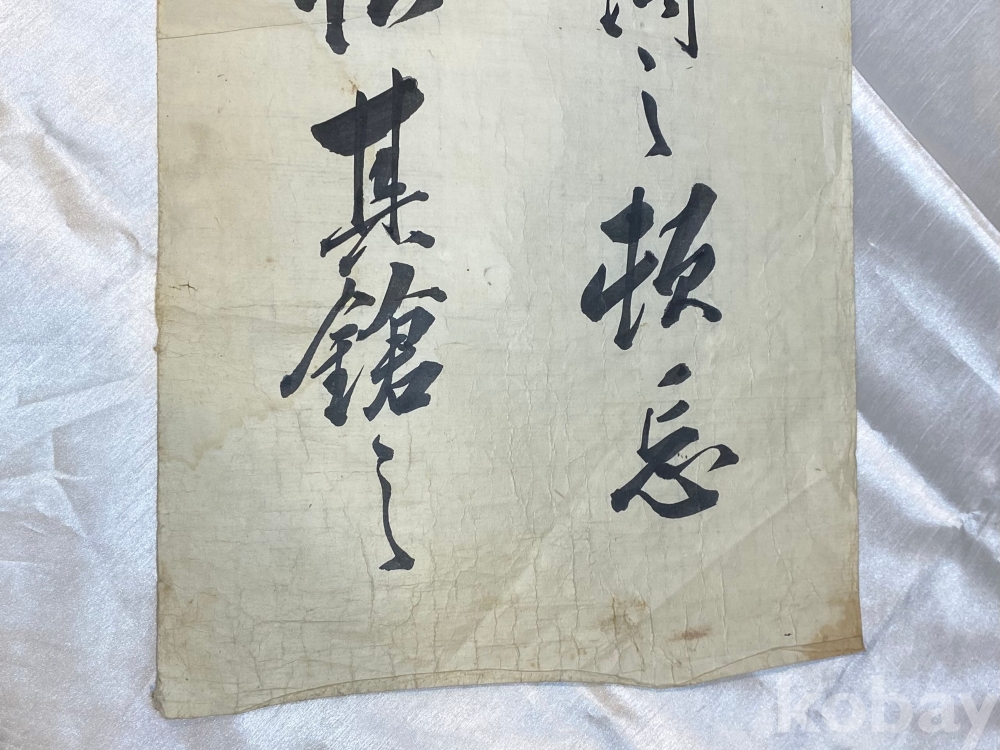 之頓忘
其鎗之
Kobay